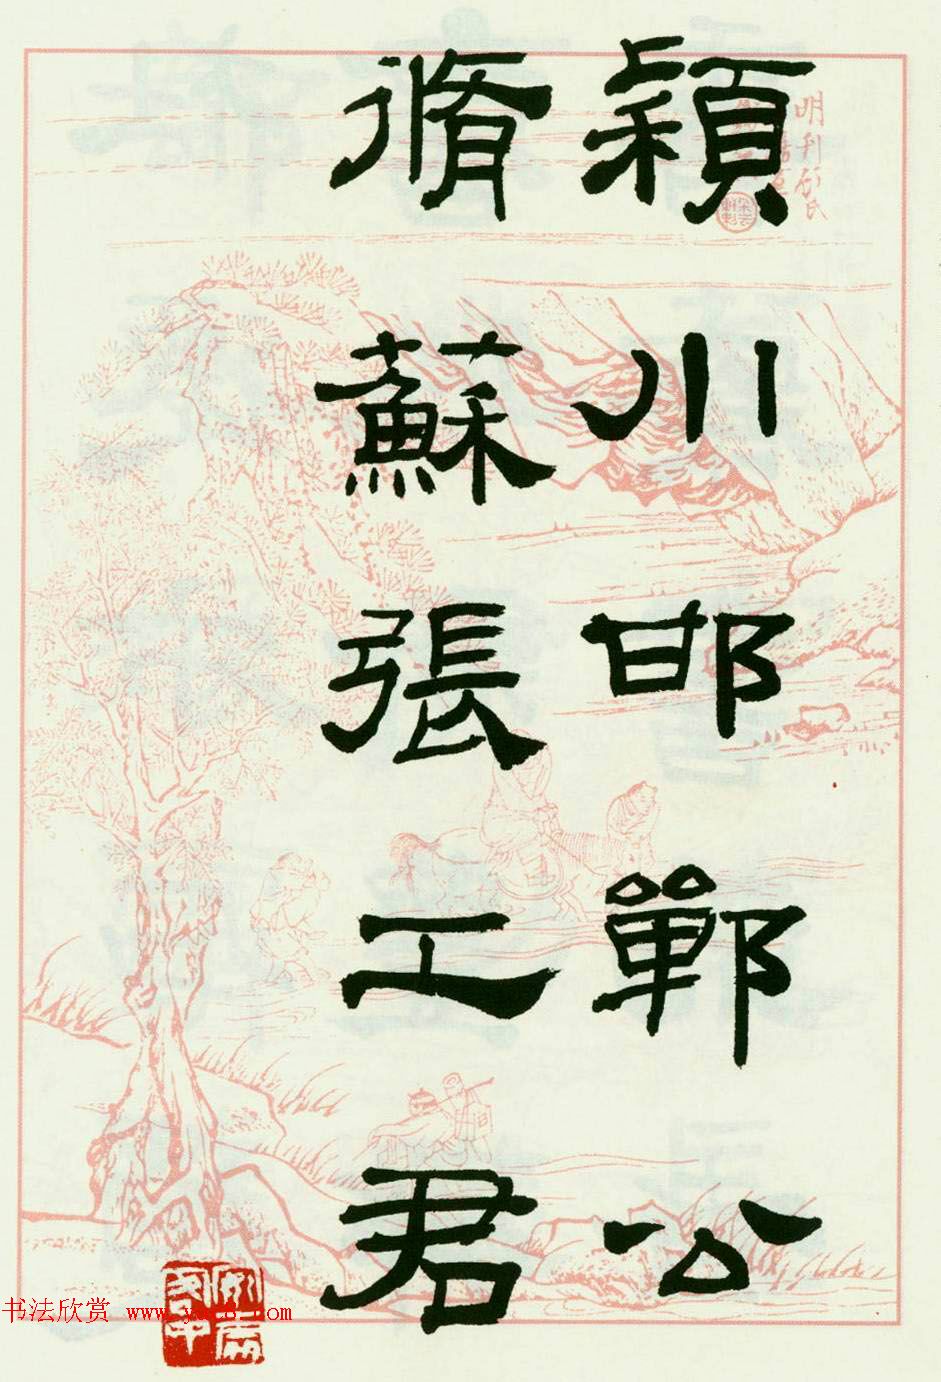 穎川邯鄲公
脩蘇張工君
明刊顧氏
书法欣赏 www.y